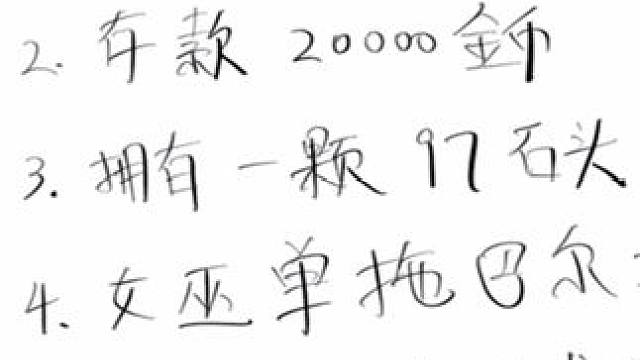 2. 存款 20000 金币
3. 拥有一颗 97 石头
4. 女巫单拖巴尔